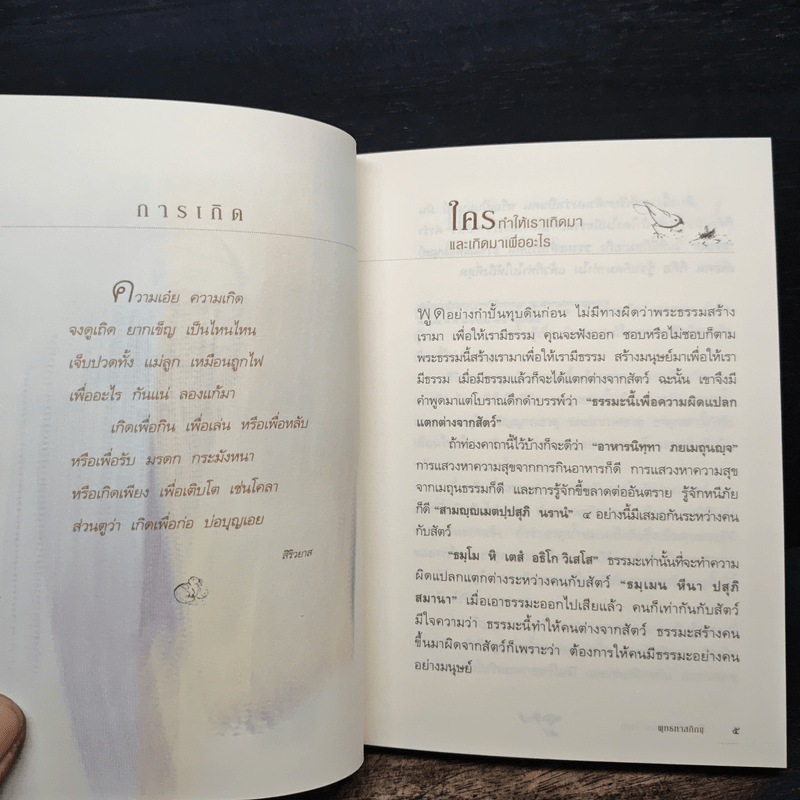 การเกิด
ความเอ๋ย ความเกิด
จงดูเถิด ยากเข็ญ เป็นไหนไหน
เจ็บปวดทั้ง แม่ลูก เหมือนถูกไฟ
เพื่ออะไร กันแน่ ลองแก้มา
เกิดเพื่อกิน เพื่อเล่น หรือเพื่อหลับ
หรือเพื่อรับ มรดก กระมังหนา
หรือเกิดเพียง เพื่อเติบโต เช่นโคลา
ส่วนตูว่า เกิดเพื่อก่อ บ่อบุญเอย
สิริวยาส
ใครทำให้เราเกิดมา
และเกิดมาเพื่ออะไร
พูดอย่างกำปั้นทุบดินก่อน ไม่มีทางผิดว่าพระธรรมสร้าง
เรามา เพื่อให้เรามีธรรม คุณจะฟังออก ชอบหรือไม่ชอบก็ตาม
พระธรรมนี้สร้างเรามาเพื่อให้เรามีธรรม สร้างมนุษย์มาเพื่อให้เรา
มีธรรม เมื่อมีธรรมแล้วก็จะได้แตกต่างจากสัตว์ ฉะนั้น เขาจึงมี
คำพูดมาแต่โบราณดึกดำบรรพ์ว่า "ธรรมะนี้เพื่อความผิดแปลก
แตกต่างจากสัตว์"
ถ้าท่องคาถานี้ไว้บ้างก็จะดีว่า "อาหารนิทฺทา ภยเมถุนญฺจ"
การแสวงหาความสุขจากการกินอาหารก็ดี การแสวงหาความสุข
จากเมถุนธรรมก็ดี และการรู้จักขี้ขลาดต่ออันตราย รู้จักหนีภัย
ก็ดี "สามญฺญเมตปฺปสุภิ นรานํ" ๔ อย่างนี้มีเสมอกันระหว่างคน
กับสัตว์
"ธมฺโม หิ เตสํ อธิโก วิเสโส" ธรรมะเท่านั้นที่จะทำความ
ผิดแปลกแตกต่างระหว่างคนกับสัตว์ "ธมฺเมน หีนา ปสุภิ
สมานา" เมื่อเอาธรรมะออกไปเสียแล้ว คนก็เท่ากันกับสัตว์
มีใจความว่า ธรรมะนี้ทำให้คนต่างจากสัตว์ ธรรมะสร้างคน
ขึ้นมาผิดจากสัตว์ก็เพราะว่า ต้องการให้คนมีธรรมะอย่างคน
อย่างมนุษย์
พุทธทาสภิกขุ ๕